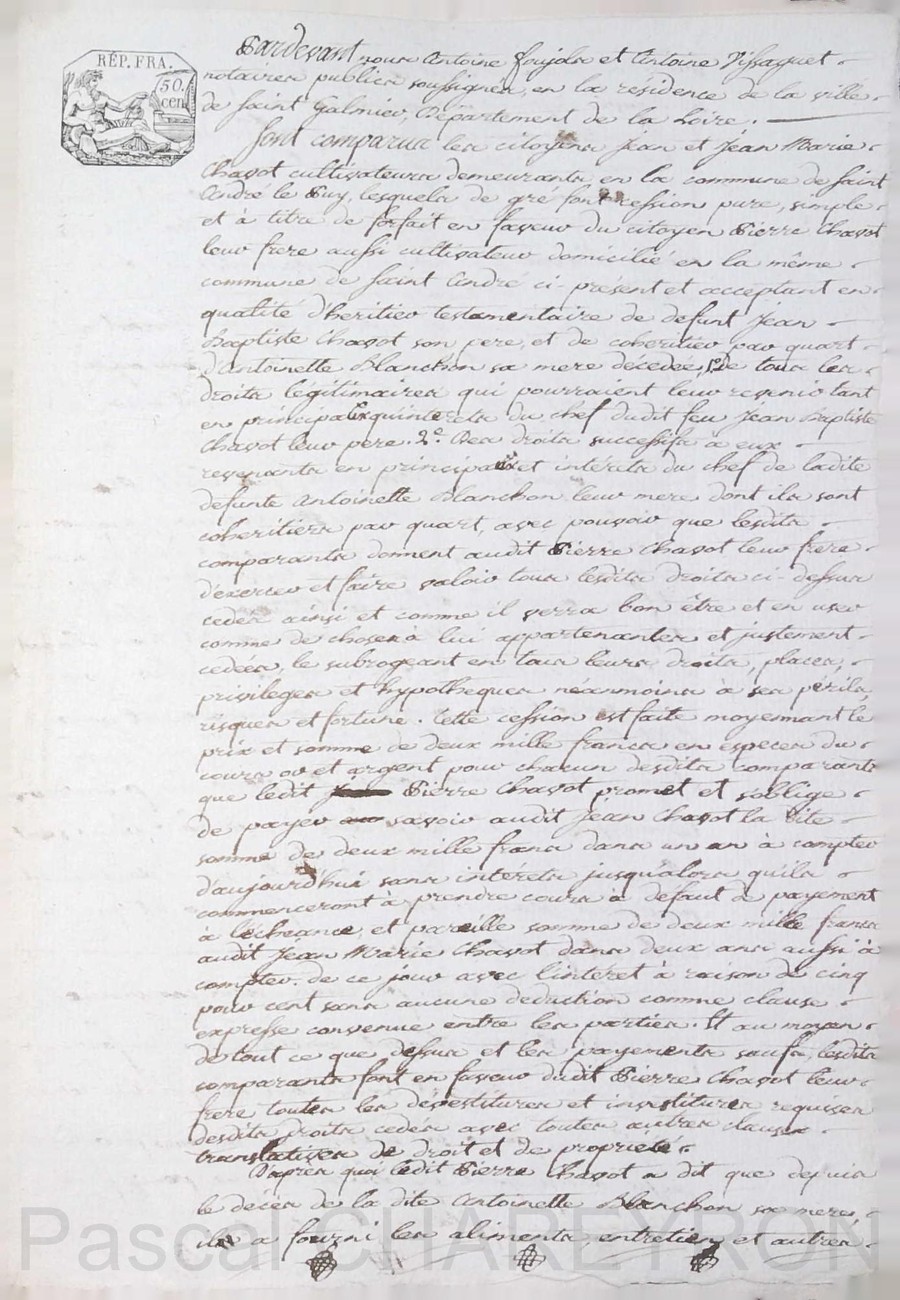 RÉP. FRA.
50.
cen
Pardevant nous Antoine Foujols et Antoine Vissaguet
notaires publics soussignés, en la résidence de la ville
de saint Galmier, Département de la Loire.
Sont comparus les citoyens Jean et Jean Marie
Chavot cultivateurs demeurants en la commune de saint
André le Puy, lesquels de gré font cession pure, simple
et à titre de forfait en faveur du citoyen Pierre Chavot
leur frere aussi cultivateur domicilié en la même
commune de saint André ci-présent et acceptant en
qualité d'héritier testamentaire de defunt Jean
Baptiste Chavot son pere, et de coheritier par quart
d'Antoinette Blanchon sa mere décédée, 1° De tous les
droits légitimaires qui pourraient leur revenir tant
en principal qu'interets du chef dudit feu Jean Baptiste
Chavot leur pere. 2°. Des droits successifs à eux
revenants en principal et intérets du chef de ladite
defunte Antoinette Blanchon leur mere dont ils sont
coheritiers par quart, avec pouvoir que lesdits
comparants donnent audit Pierre Chavot leur frere
d'exercer et faire valoir tous lesdits droits ci-dessus
cedés ainsi et comme il verra bon être et en user
comme de choses à lui appartenantes et justement
cedées, le subrogeant en tous leurs droits, places,
privileges et hypotheques néanmoins à ses périls,
risques et fortune. Cette cession est faite moyennant le
prix et somme de deux mille francs en especes du
cours or et argent pour chacun desdits comparants
que ledit Pierre Chavot promet et s'oblige
de payer savoir audit Jean Chavot la dite
somme de deux mille francs dans un an à compter
d'aujourd'hui sans intérets jusqu'alors qu'ils
commenceront à prendre cours à defaut de payement
à l'echeance, et pareille somme de deux mille francs
audit Jean Marie Chavot dans deux ans aussi à
compter de ce jour avec l'interet à raison de cinq
pour cent sans aucune deduction comme clause
expresse convenue entre les parties. Et au moyen
de tout ce que dessus et les payements saufs, lesdits
comparants font en faveur dudit Pierre Chavot leur
frere toutes les dévestitures et investitures requises
desdits droits cedés avec toutes autres clauses
translatives de droit et de propriété.
D'après quoi ledit Pierre Chavot a dit que depuis
le décès de la dite Antoinette Blanchon sa mere,
il a fourni les aliments, entretien, et autres
Pascal CHAREYRON